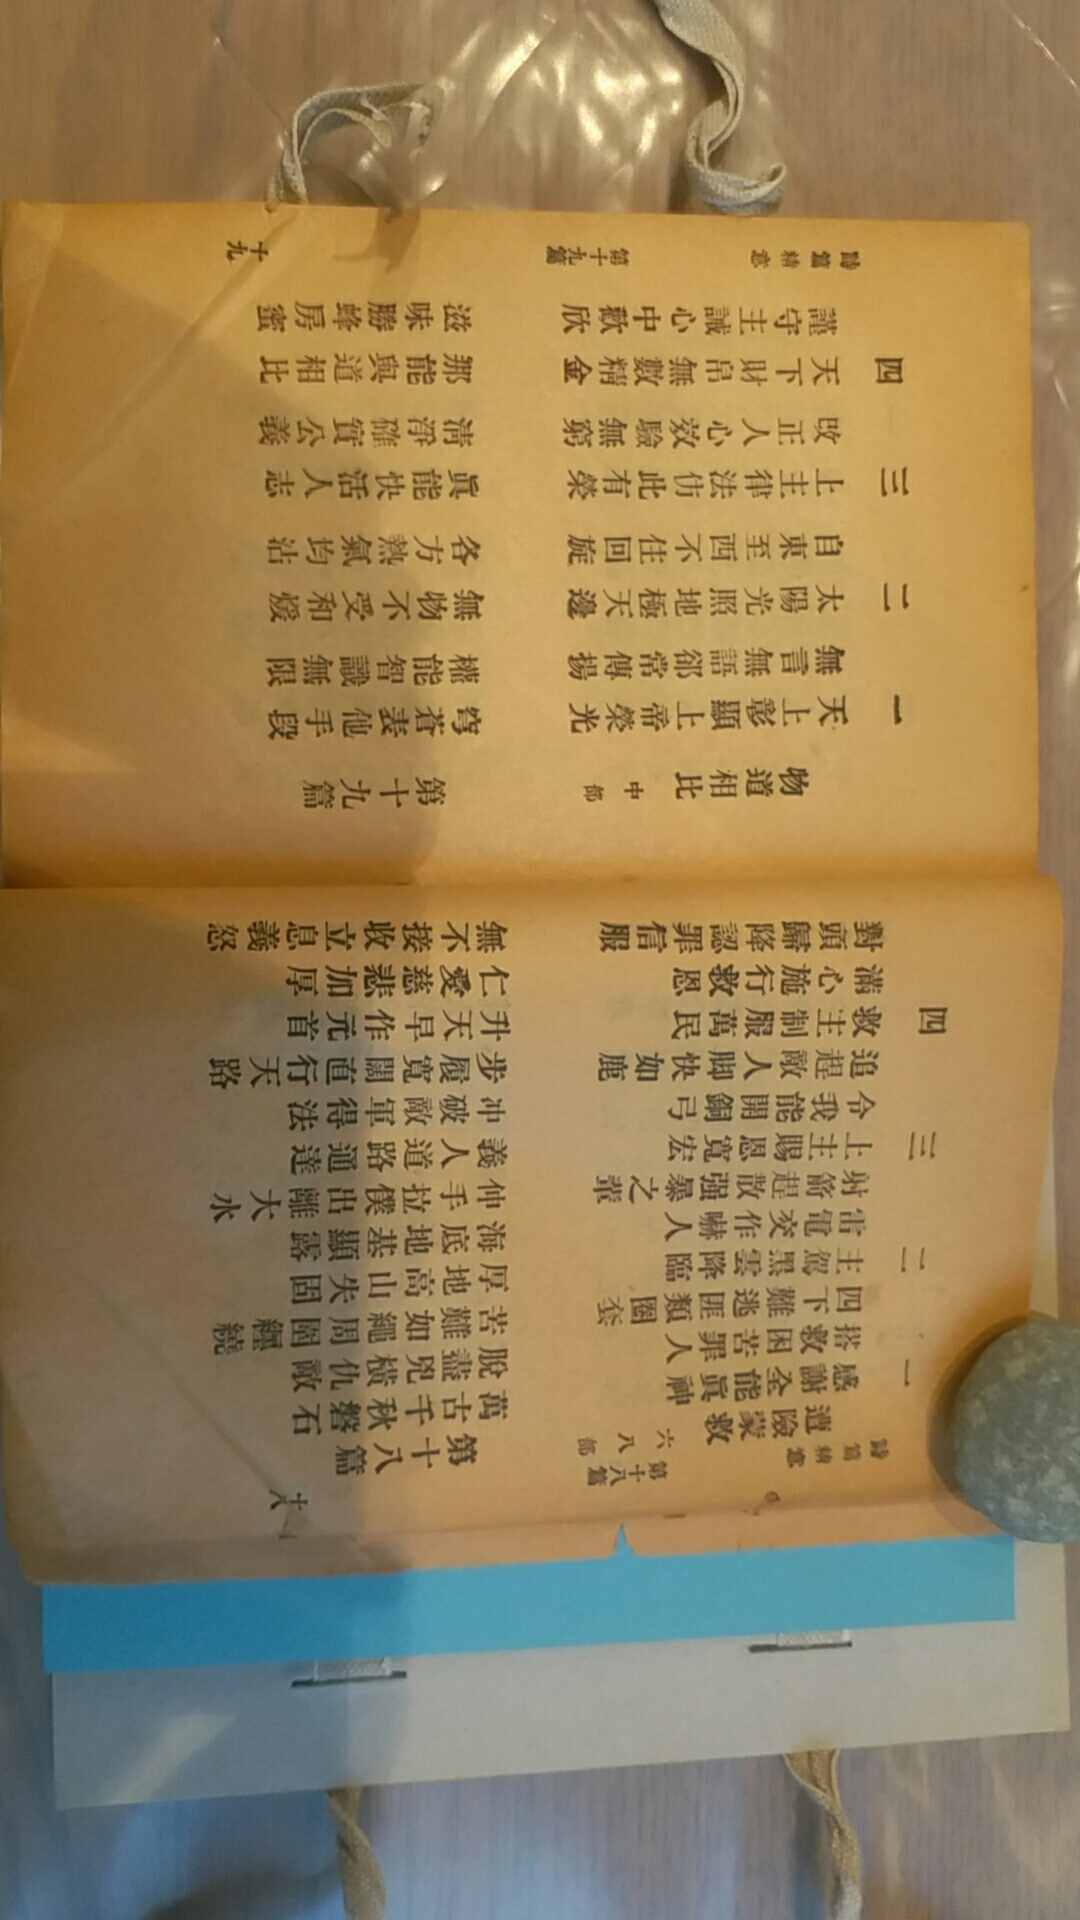 詩篇精意 第十八篇 十八
遭險蒙救 六八部 第十八篇
一 感謝全能眞神 萬古千秋磐石
搭救困苦罪人 脫盡兇橫仇敵
四下難逃匪類圈套 苦難如繩周圍纒繞
二 主駕黑雲降臨 厚地高山失固
雷電交作嚇人 海底地基顯露
射箭趕散强暴之輩 伸手拉僕出離大水
三 上主賜恩寬宏 義人道路通達
令我能開銅弓 冲破敵軍得法
追趕敵人脚快如鹿 步履寬闊直行天路
四 救主制服萬民 升天早作元首
滿心施行救恩 仁愛慈悲加厚
對頭歸降認罪信服 無不接收立息義怒
物道相比 中部 第十九篇
一 天上彰顯上帝榮光 穹蒼表他手段
無言無語郤常傳揚 權能智識無限
二 太陽光照地極天邊 無物不受和煖
自東至西不住回旋 各方熱氣均沾
三 上主律法仿此有榮 眞能快活人志
改正人心效驗無窮 淸淨確實公義
四 天下財帛無數精金 那能與道相比
謹守主誡心中歡欣 滋味勝蜂房蜜
詩篇精意 第十九篇 十九